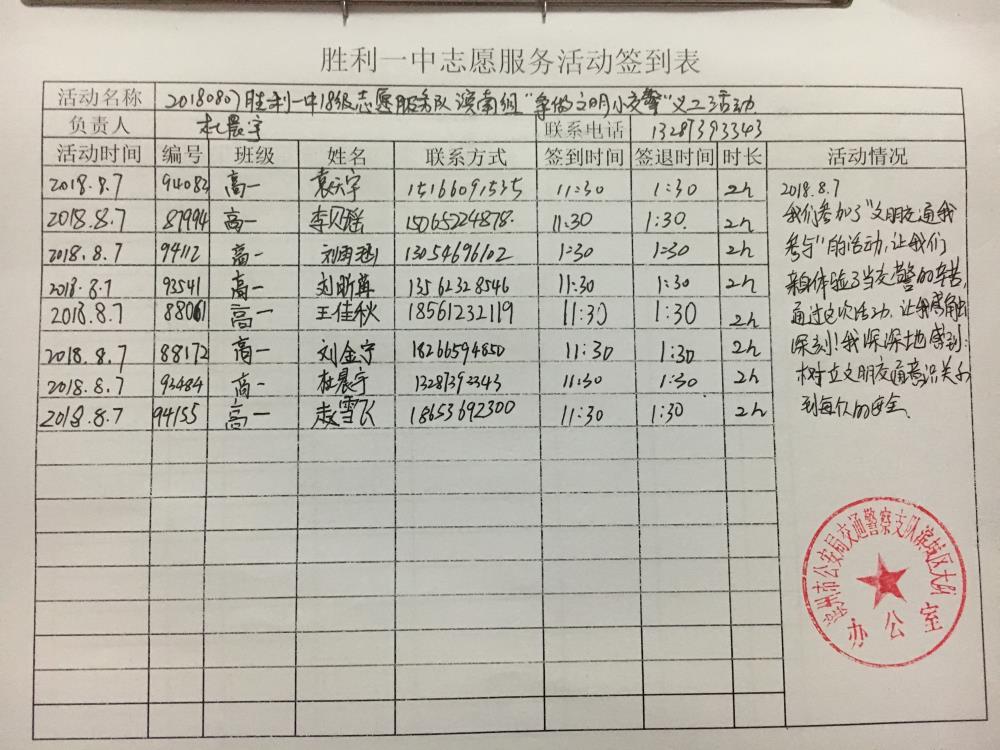 胜利一中志愿服务活动签到表
活动名称 20180807胜利一中18级志愿服务队滨南组"争做文明小交警"义工活动
负责人 杜晨宇 联系电话 13287393343
活动时间 编号 班级 姓名 联系方式 签到时间 签退时间 时长 活动情况
2018.8.7 94083 高一 袁天宇 15166091535 11:30 1:30 2h
2018.8.7 87994 高一 李贝瑶 15065224878 11:30 1:30 2h
2018.8.7 94112 高一 刘雨涵 13054696102 1:30 1:30 2h
2018.8.7 93541 高一 刘昕苒 13562328546 11:30 1:30 2h
2018.8.7 88061 高一 王佳秋 18561232119 11:30 1:30 2h
2018.8.7 88172 高一 刘金宁 18266594850 11:30 1:30 2h
2018.8.7 93484 高一 杜晨宇 13287393343 11:30 1:30 2h
2018.8.7 94155 高一 赵雪飞 18653692300 11:30 1:30 2h
2018.8.7
我们参加了"文明交通我
参与"的活动,让我们
亲自体验了当交警的辛苦,
通过这次活动,让我感触
深刻!我深深地感到:
树立文明交通意识关系
到每个人的安全.
滨州市公安局交通警察支队滨城区大队
办公室